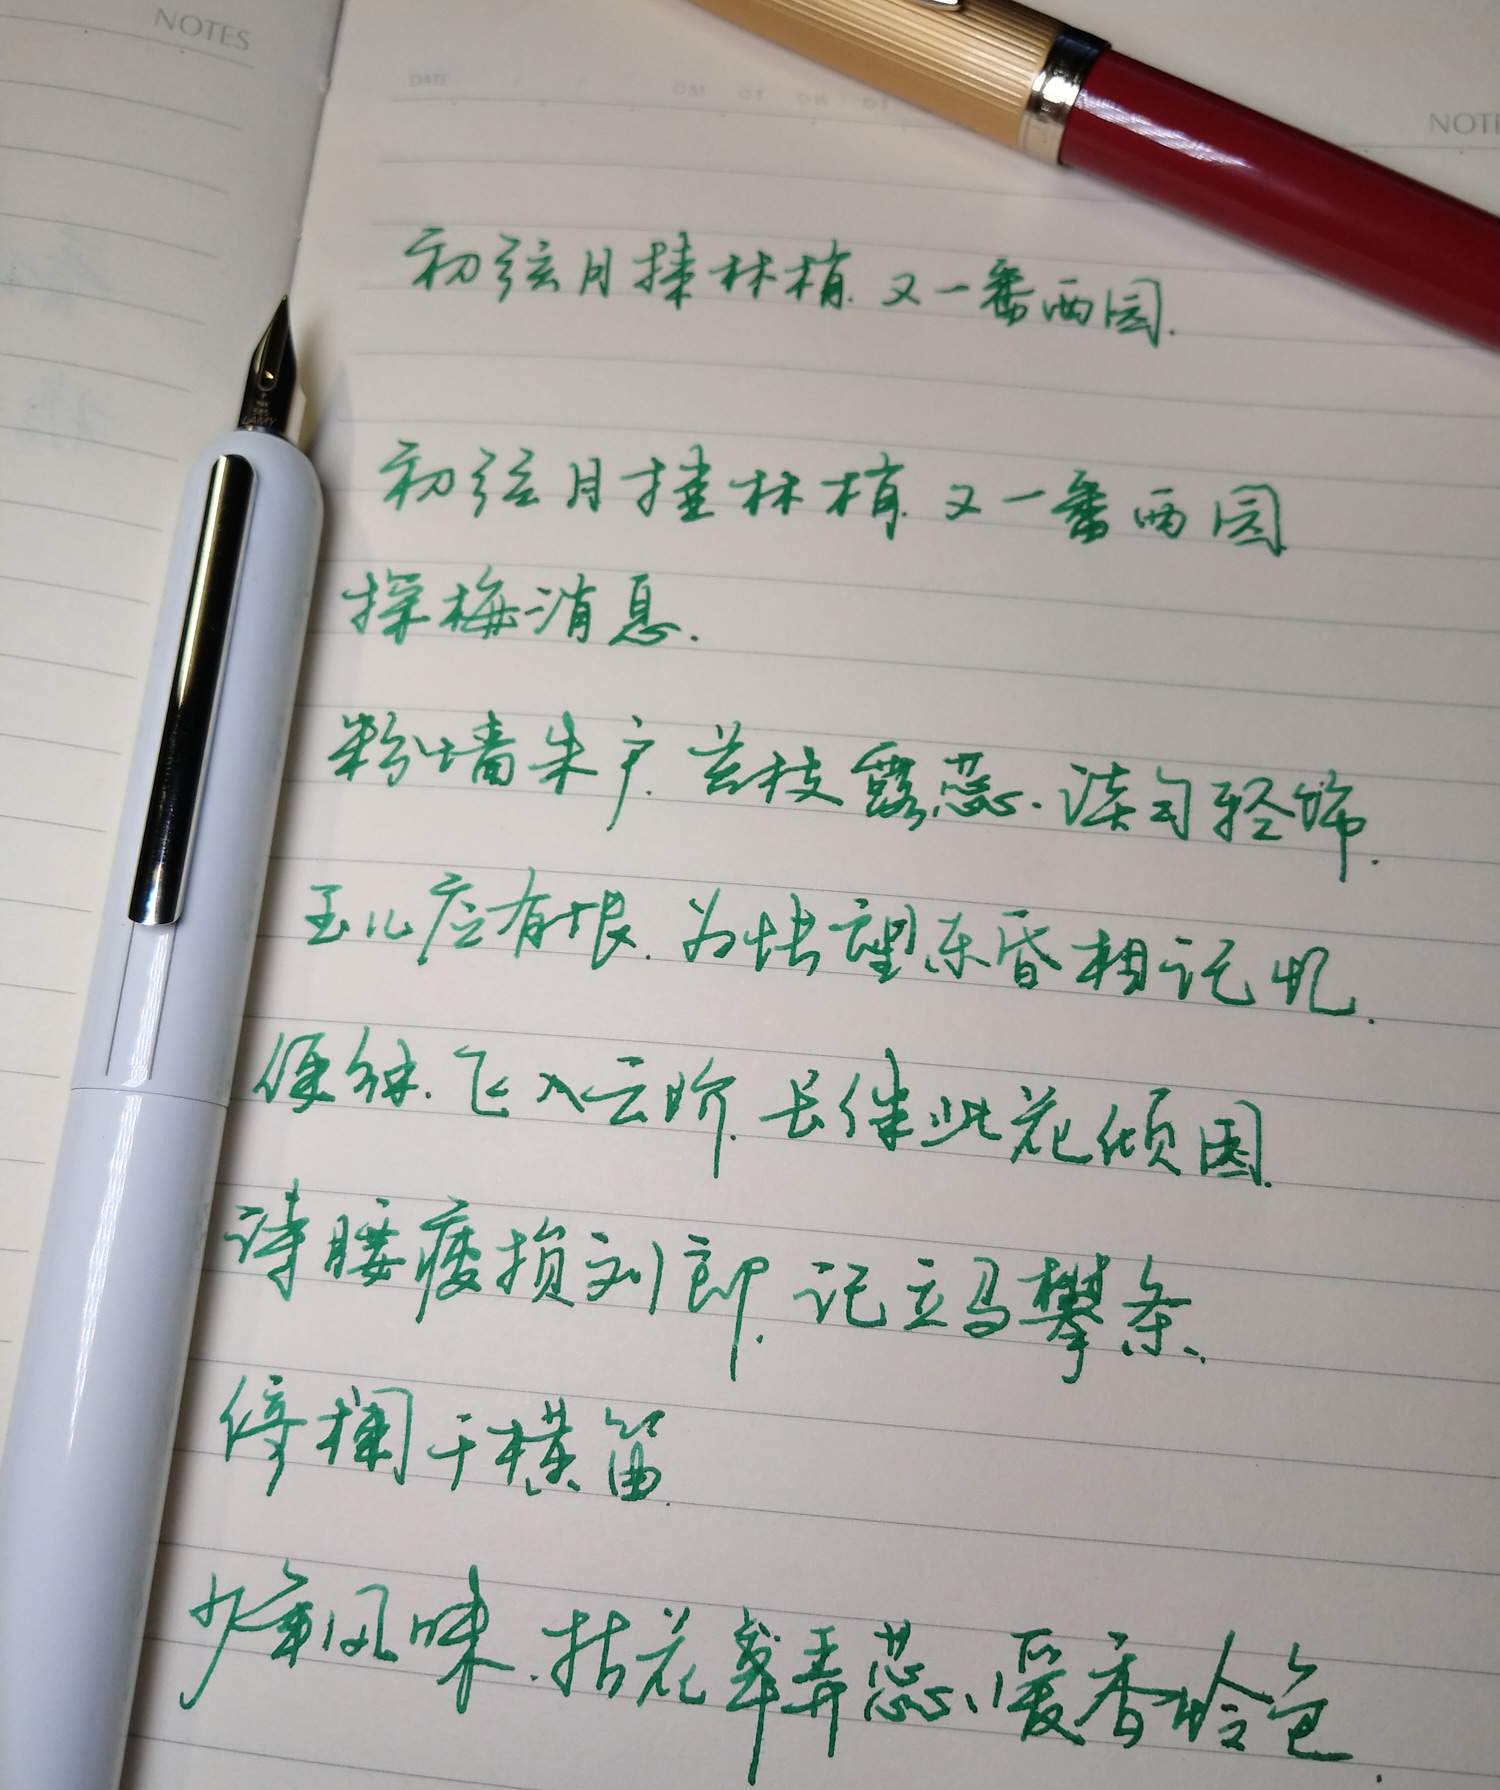 NOTES
DATE
NOTE
LAMY
初弦月挂林梢.又一番西园.
初弦月挂林梢.又一番西园
探梅消息.
粉墙朱户.苔枝露蕊.淡匀轻饰.
玉儿应有恨.为怅望东昏相记忆.
便钵.飞入云阶.长伴此花倾国.
诗腰瘦损刘郎.记立马攀条.
倚栏干横笛.
少年风味.拈花弄蕊、爱香怜色.